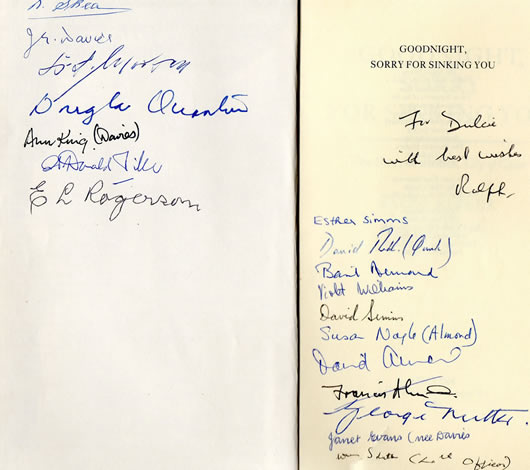 J.R. Davies
Douglas Quantrill
Ann King (Davies)
Donald
E L Rogerson
GOODNIGHT,
SORRY FOR SINKING YOU
For Dulcie
with best wishes
Ralph.
Esther Simms
David
Basil
Violet Williams
David Simms
Susan Nagle (Almond)
David
Francis
George Nutter.
Janet Evans (nee Davies
Officer)